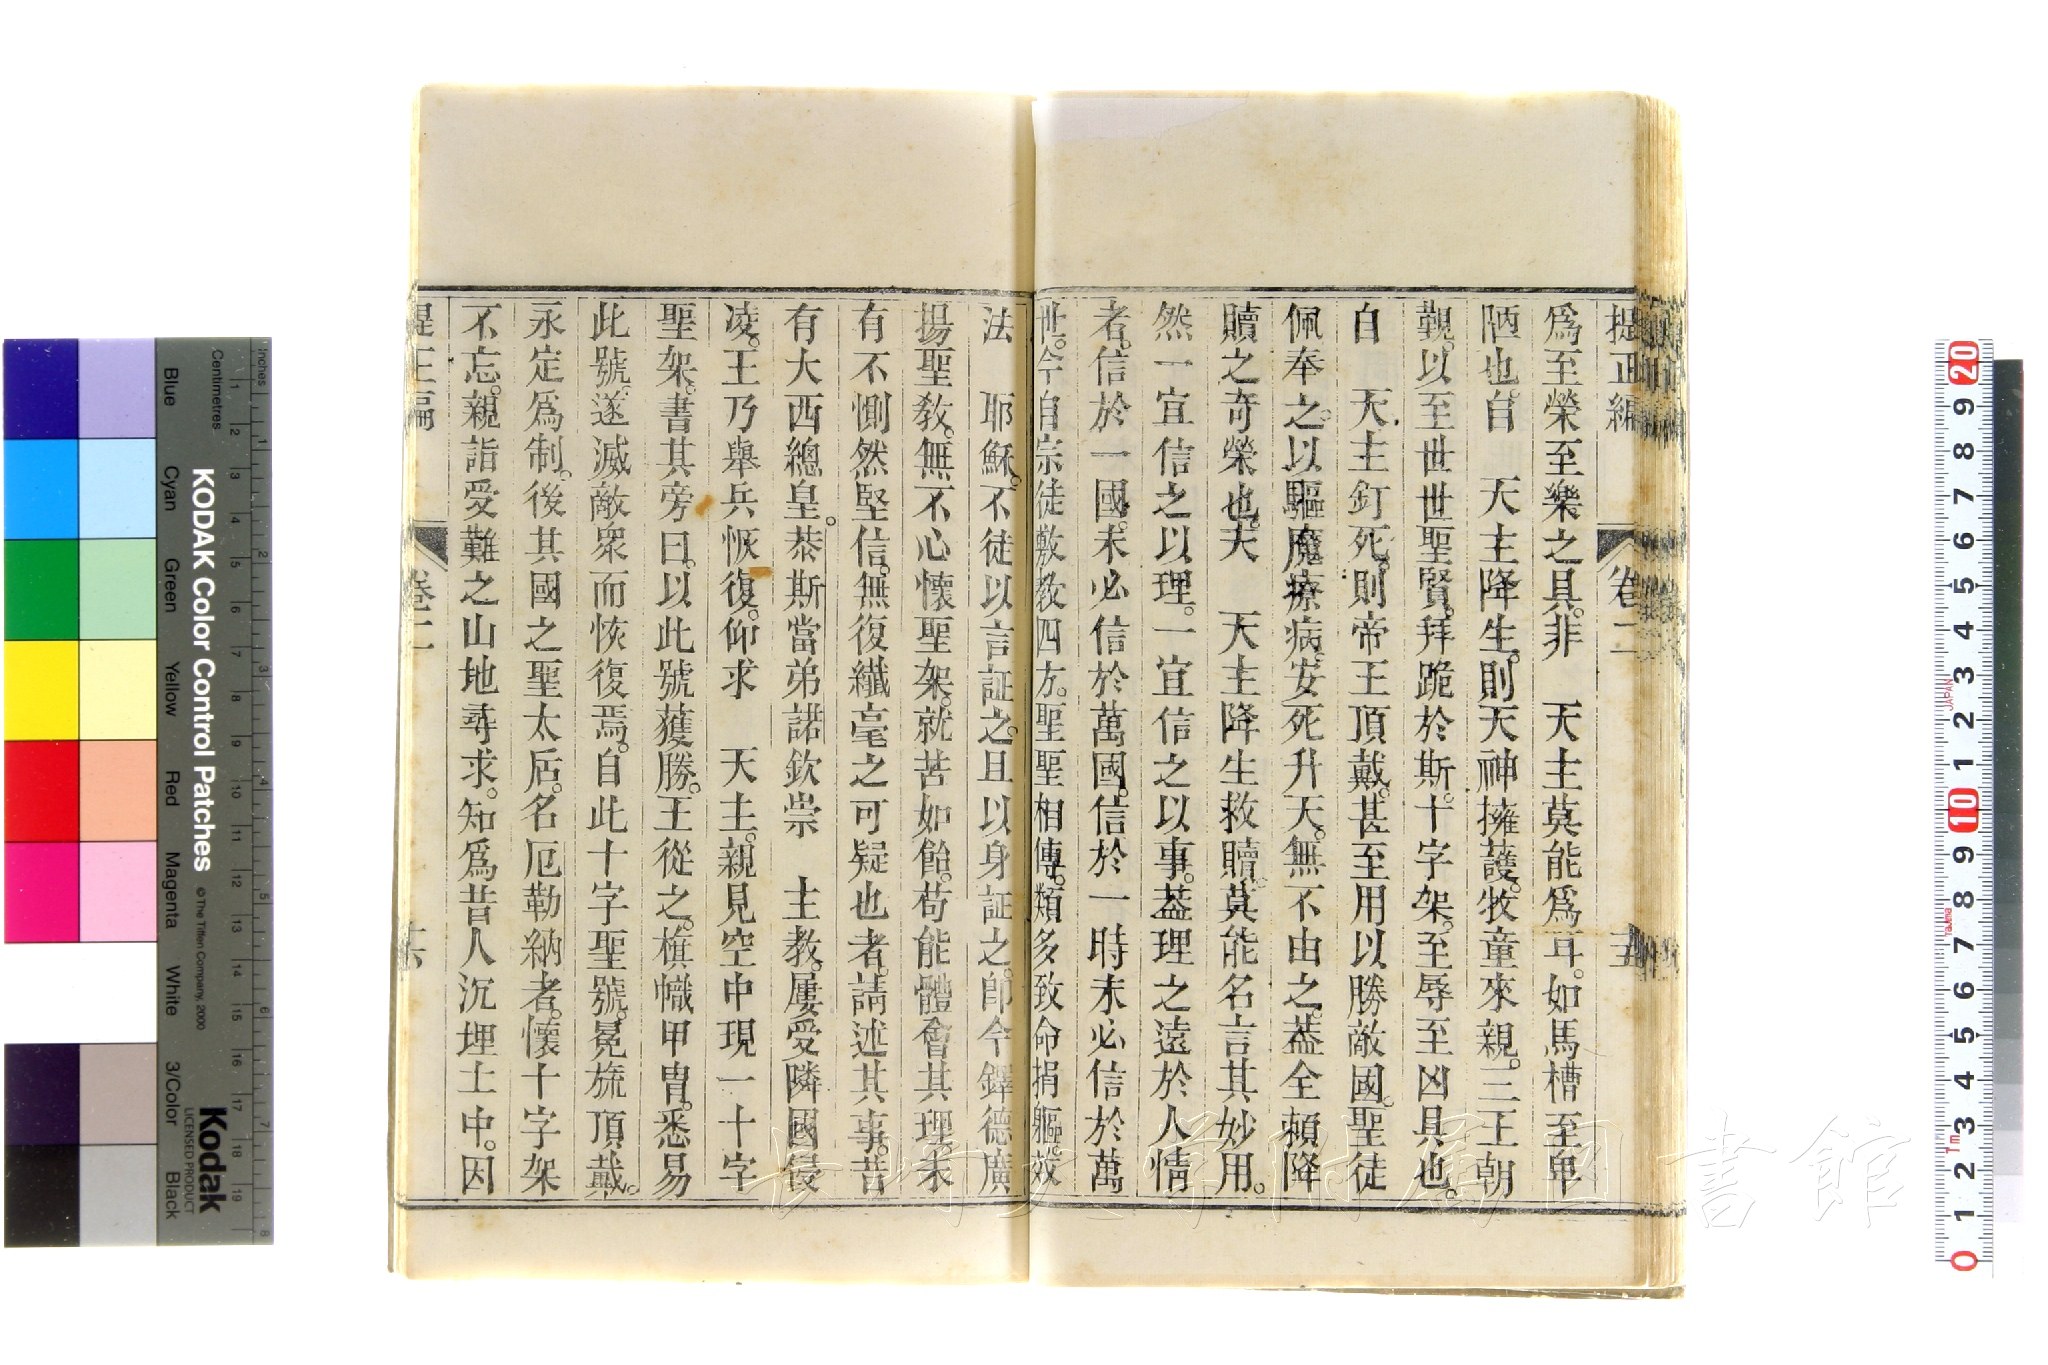 提正編 卷二 五
爲至榮至樂之具。非 天主莫能爲耳。如馬槽至卑
陋也。自 天主降生。則天神擁護。牧童來親。三王朝
觀。以至世世聖賢。拜跪於斯。十字架。至辱至凶具也。
自 天主釘死。則帝王頂戴。甚至用以勝敵國。聖徒
佩奉之。以驅魔療病。安死升天。無不由之。葢全賴降
贖之奇榮也。夫 天主降生救贖。莫能名言其妙用。
然一宜信之以理。一宜信之以事。葢理之遠於人情
者。信於一國。未必信於萬國。信於一時未必信於萬
世。今自宗徒敷教四方。聖聖相傳。類多致命捐軀。效
法 耶穌。不徒以言証之。且以身証之。卽今鐸德廣
揚聖敎。無不心懷聖架。就苦如飴。苟能體會其理。未
有不惻然堅信。無復纖毫之可疑也者。請述其事。昔
有大西總皇。恭斯當弟諾欽崇 主教。屢受隣國侵
凌。王乃舉兵恢復。仰求 天主。親見空中現一十字
聖架。書其旁曰。以此號獲勝。王從之。旗幟甲冑。悉易
此號。遂滅敵衆而恢復焉。自此十字聖號。冕旒頂戴。
永定爲制。後其國之聖太后。名厄勒納者。懷十字架
不忘。親詣受難之山地尋求。知爲昔人沉埋土中。因
提正編 卷二 六
KODAK Color Control Patches
© The Tiffen Company, 2000
Kodak
LICENSED PRODUCT
Inches
Centimetres
Blue Cyan Green Yellow Red Magenta White 3/Color Black
JAPAN
長崎大学附属図書館